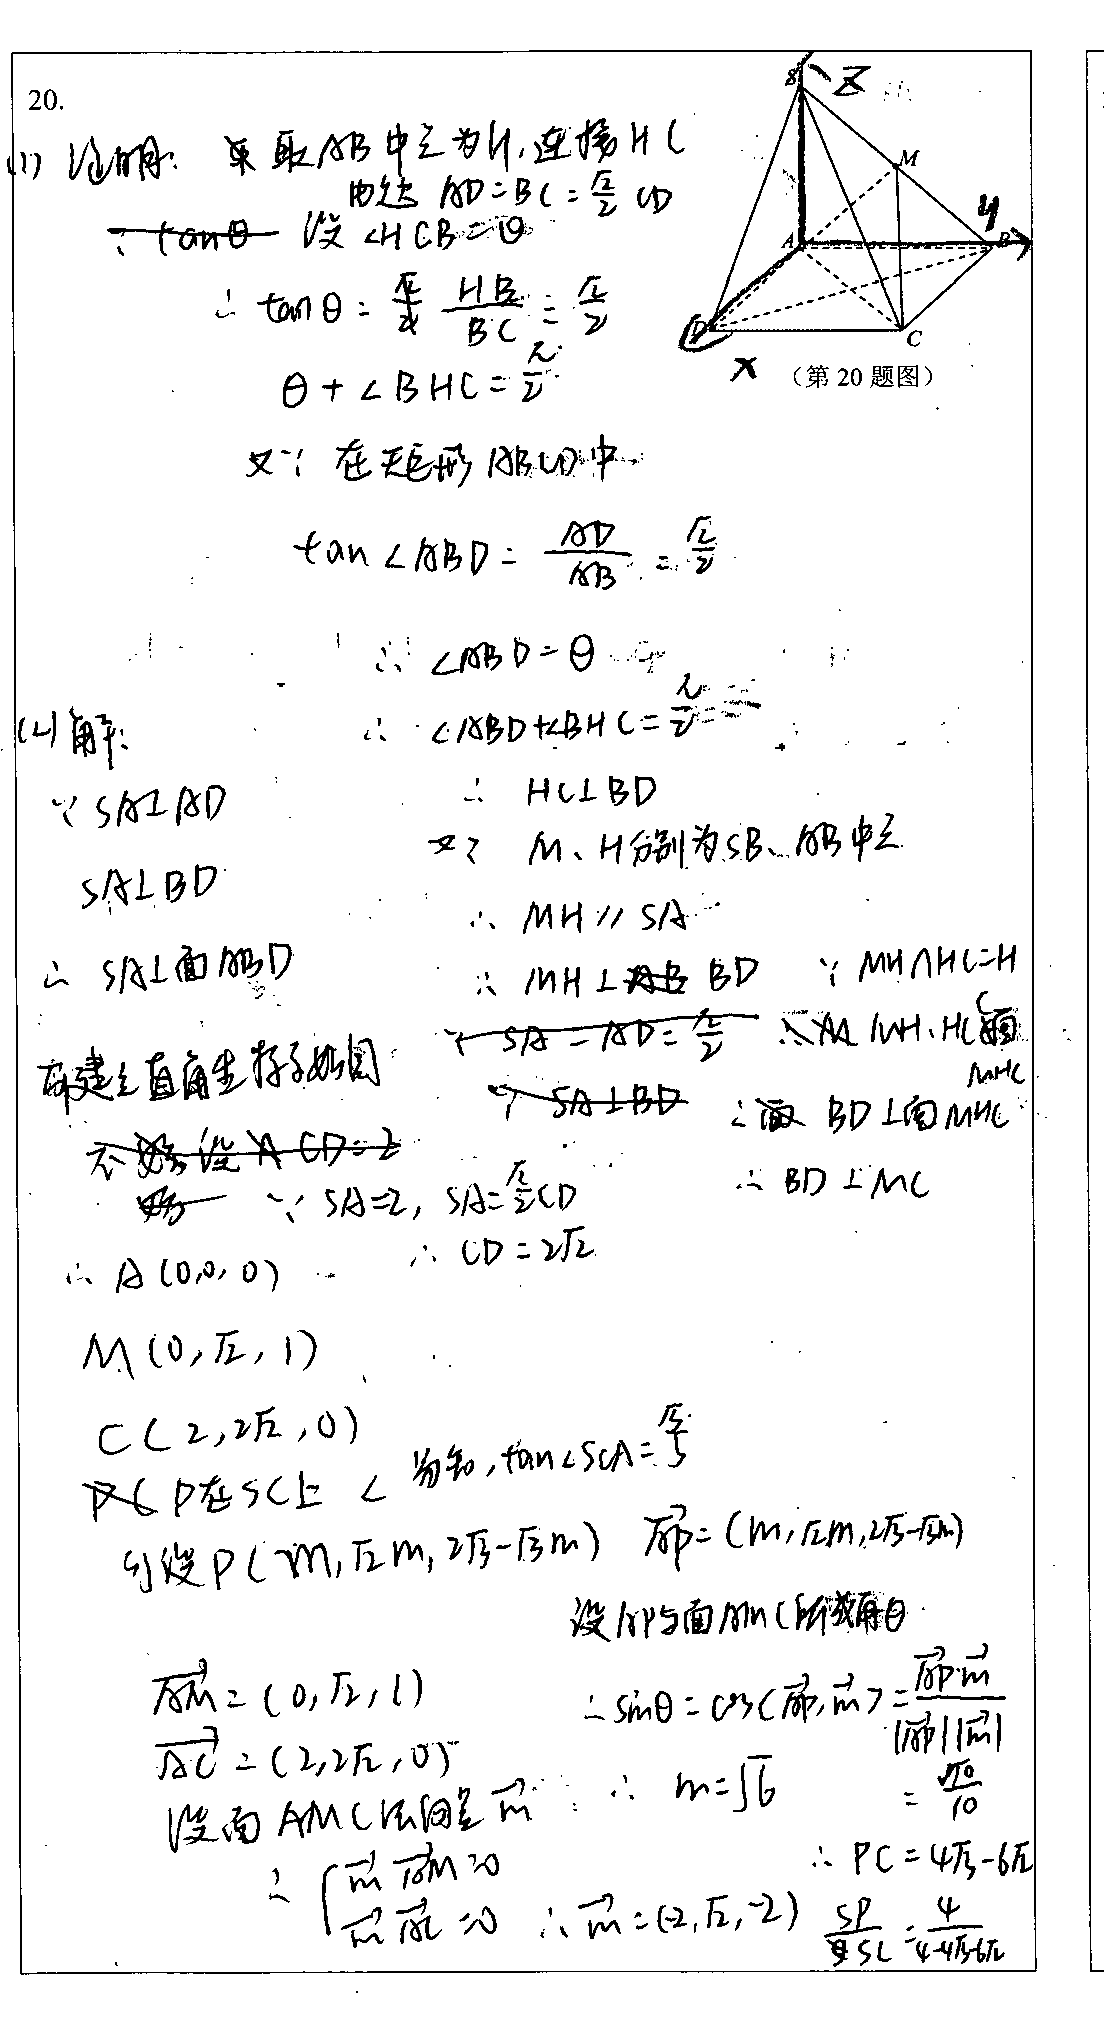 20.
(1) 证明: 取AB中点为H,连接HC
由题 AD=BC=√2/2 CD
设∠HCB=θ
∴ tanθ= HB/BC = √2/2
θ+∠BHC=π/2
又∵ 在矩形ABCD中
tan∠ABD= AD/AB = √2/2
∴ ∠ABD=θ
∴ ∠ABD+∠BHC=π/2
∴ HC⊥BD
又∵ M、H分别为SB、AB中点
∴ MH∥SA
∴ MH⊥BD ∵ MH∩HC=H
MH、HC⊂面MHC
∴ BD⊥面MHC
∴ BD⊥MC
(2)解:
∵ SA⊥AD
SA⊥BD
∴ SA⊥面ABD
建立直角坐标系如图
∵ SA=2, SA=√2/2 CD
∴ CD=2√2
∴ A(0,0,0)
M(0,√2,1)
C(2,2√2,0)
P在SC上 易知,tan∠SCA=√3/3
可设P(m,√2m,2√3-√3m) AP=(m,√2m,2√3-√3m)
设AP与面AMC所成角θ
AM=(0,√2,1)
AC=(2,2√2,0)
∴sinθ=cos<AP,m>= AP·m/|AP||m|
= √10/10
设面AMC法向量m
∴ m=√6
∴ { m·AM=0
m·AC=0 ∴ m=(-2,√2,-2)
∴ PC=4√3-6√2
SP/SC = 4/4-4√3-6√2
S
Z
M
y
A
B
D
C
x
(第20题图)